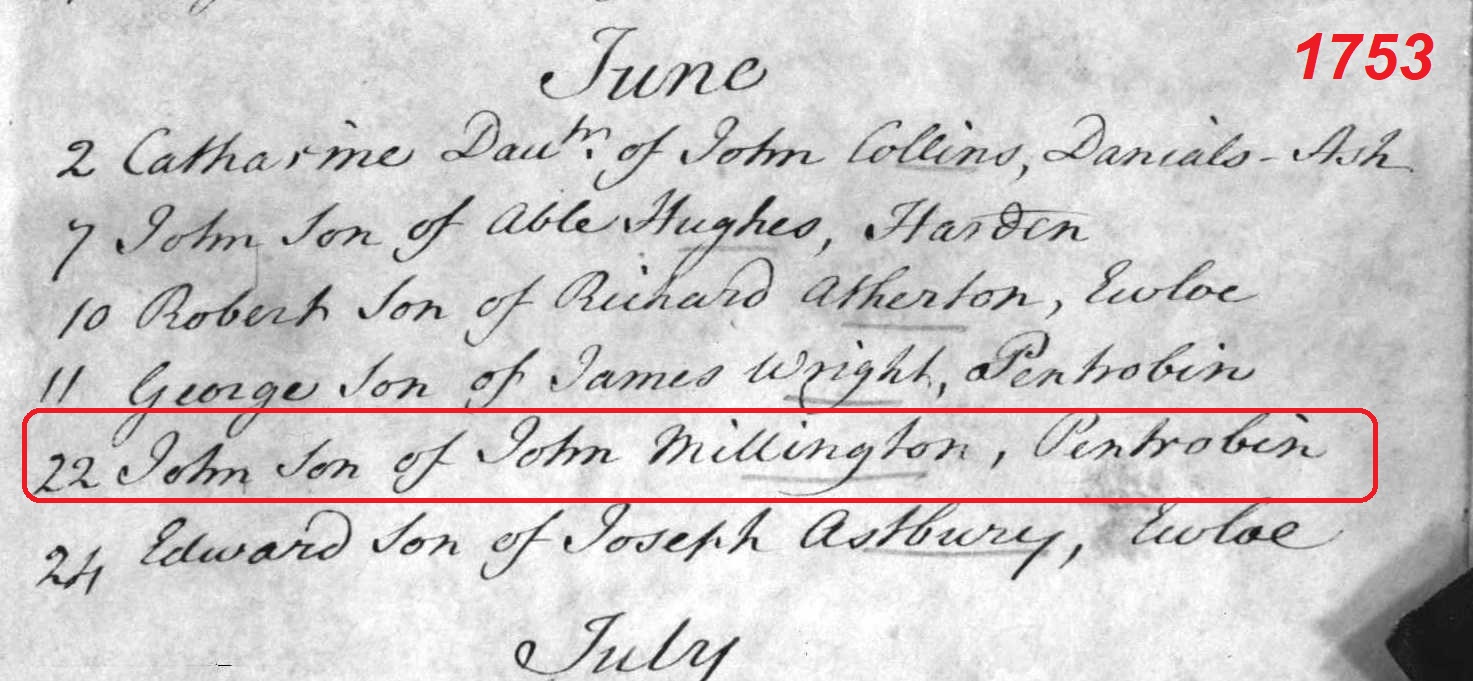 1753
June
2 Catharine Dautr. of John Collins, Danials-Ash
7 John Son of Able Hughes, Harden
10 Robert Son of Richard Atherton, Ewloe
11 George Son of James Wright, Pentrobin
22 John Son of John Millington, Pentrobin
24 Edward Son of Joseph Astbury, Ewloe
July